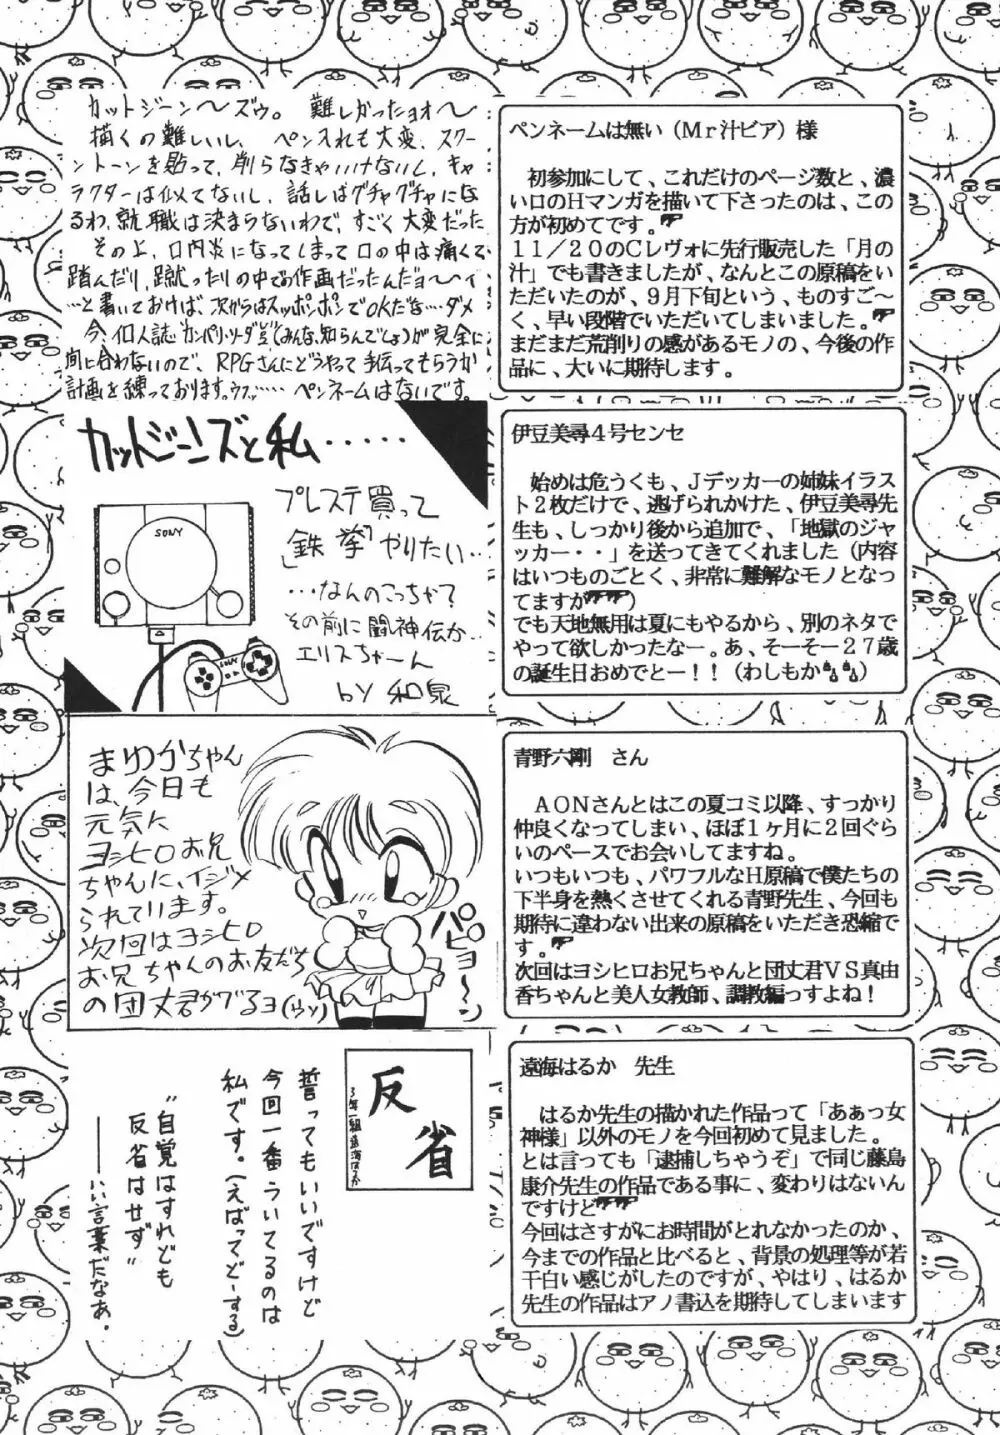 カットジーン〜ズゥ。 難しかったョォ〜
描くの難しいし、ペン入れも大変、スクリ
ーントーンを貼って、削らなきゃいけないし、キャ
ラクターは似てないし、話しはグチャグチャにな
るわ、就職は決まらないわで、すごく大変だった
その上、口内炎になってしまって口の中は痛くて、
踏んだり、蹴ったりの中でお作画だったんだョ〜〜
…と書いておけば、次からはスッポンポンでOKだな…ダメ
今、個人誌
(みんな知らんでしょ)が完全に
間に合わないので、RPGさんにどうやって手伝ってもらうか
計画を練っております。ウフッ…… ペンネームはないです。
ペンネームは無い（Mr汁ビア）様
初参加にして、これだけのページ数と、濃
い口のHマンガを描いて下さったのは、この
方が初めてです。
11／20のCレヴォに先行販売した「月の
汁」でも書きましたが、なんとこの原稿をい
ただいたのが、9月下旬という、ものすご〜
く、早い段階でいただいてしまいました。
まだまだ荒削りの感があるモノの、今後の作
品に、大いに期待します。
カットジーンズと私・・・・・
SONY
SONY
プレステ買って
「鉄拳」やりたい…
…なんのこっちゃ？
その前に闘神伝か…
エリスちゃーん
by 和泉
伊豆美尋4号センセ
始めは危うくも、Jデッカーの姉妹イラス
ト2枚だけで、逃げられかけた、伊豆美尋先
生も、しっかり後から追加で、「地獄のジャ
ッカー・・」を送ってきてくれました（内容
はいつものごとく、非常に難解なモノとなっ
てますが）
でも天地無用は夏にもやるから、別のネタで
やって欲しかったなー。あ、そーそー27歳
の誕生日おめでとー！！（わしもか）
まゆかちゃん
は、今日も
元気に
ヨシヒロお兄
ちゃんに、イジメ
られています。
次回はヨシヒロ
お兄ちゃんのお友だち
の団丈君がでるヨ(ウソ)
パピョ〜〜ン
青野六剛 さん
AONさんとはこの夏コミ以降、すっかり
仲良くなってしまい、ほぼ1ヶ月に2回ぐら
いのペースでお会いしてますね。
いつもいつも、パワフルなH原稿で僕たちの
下半身を熱くさせてくれる青野先生、今回も
期待に違わない出来の原稿をいただき恐縮で
す。
次回はヨシヒロお兄ちゃんと団丈君VS真由
香ちゃんと美人女教師、調教編っすよね！
反省
3年一組遠海はるか
誓ってもいいですけど
今回一番ういてるのは
私です。(えばってどーする)
"自覚はすれども
反省はせず"
――いい言葉だなぁ。
遠海はるか 先生
はるか先生の描かれた作品って「あぁっ女
神様」以外のモノを今回初めて見ました。
とは言っても「逮捕しちゃうぞ」で同じ藤島
康介先生の作品である事に、変わりはないん
ですけど
今回はさすがにお時間がとれなかったのか、
今までの作品と比べると、背景の処理等が若
干白い感じがしたのですが、やはり、はるか
先生の作品はアノ書込を期待してしまいます